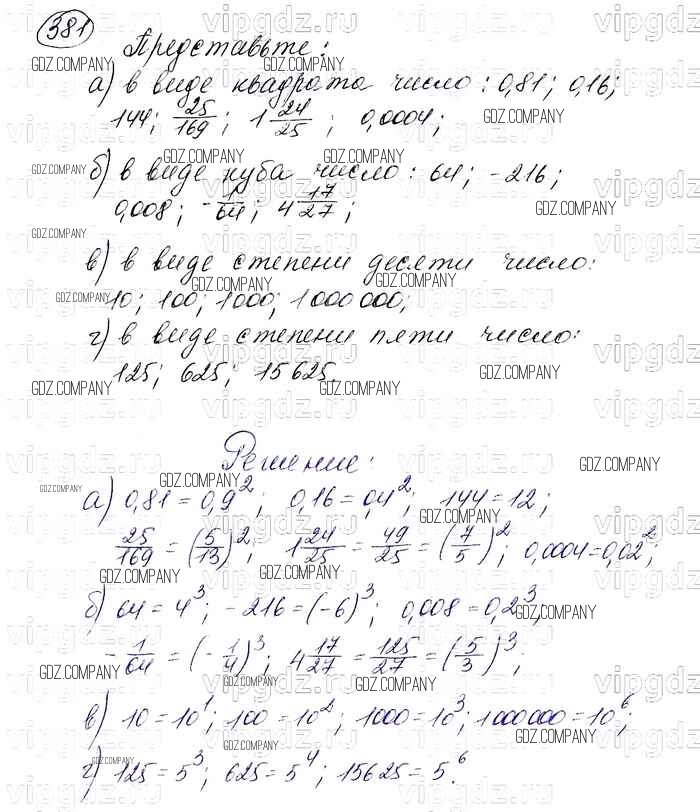 381
Представьте:
а) в виде квадрата число: 0,81; 0,16;
144; 25/169; 1 24/25; 0,0004;
б) в виде куба число: 64; -216;
0,008; -1/64; 4 17/27;
в) в виде степени десяти число:
10; 100; 1000; 1 000 000;
г) в виде степени пяти число:
125; 625; 15 625.
Решение:
а) 0,81 = 0,9²; 0,16 = 0,4²; 144 = 12;
25/169 = (5/13)²; 1 24/25 = 49/25 = (7/5)²; 0,0004 = 0,02²;
б) 64 = 4³; -216 = (-6)³; 0,008 = 0,2³;
-1/64 = (-1/4)³; 4 17/27 = 125/27 = (5/3)³;
в) 10 = 10¹; 100 = 10²; 1000 = 10³; 1 000 000 = 10⁶;
г) 125 = 5³; 625 = 5⁴; 15625 = 5⁶.
vipgdz.ru
GDZ.COMPANY